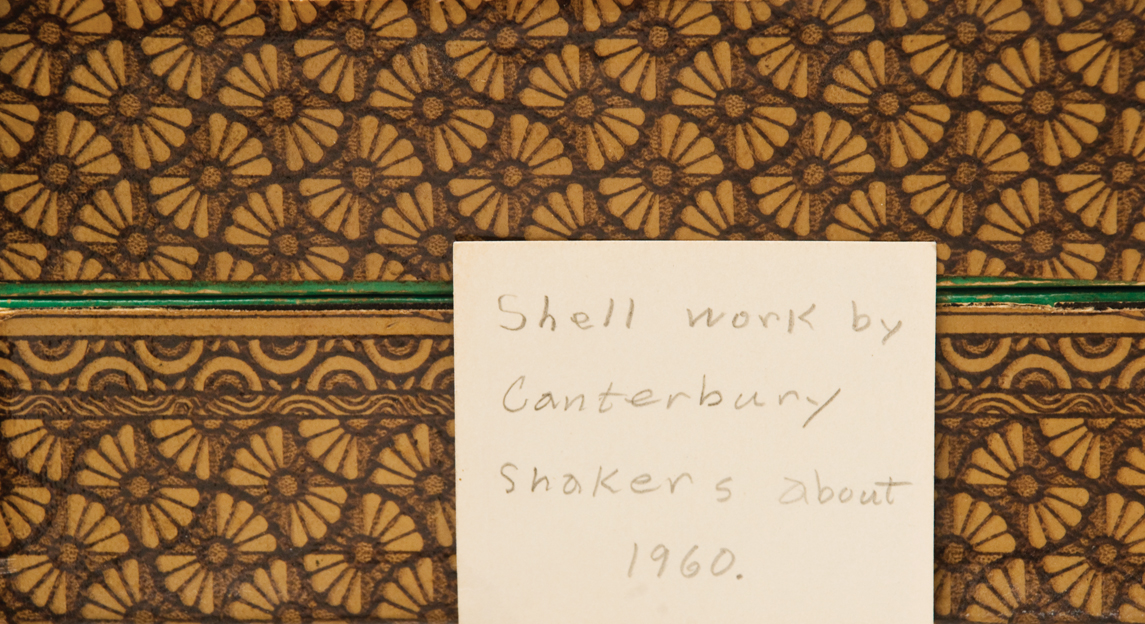 Shell work by
Canterbury
Shakers about
1960.